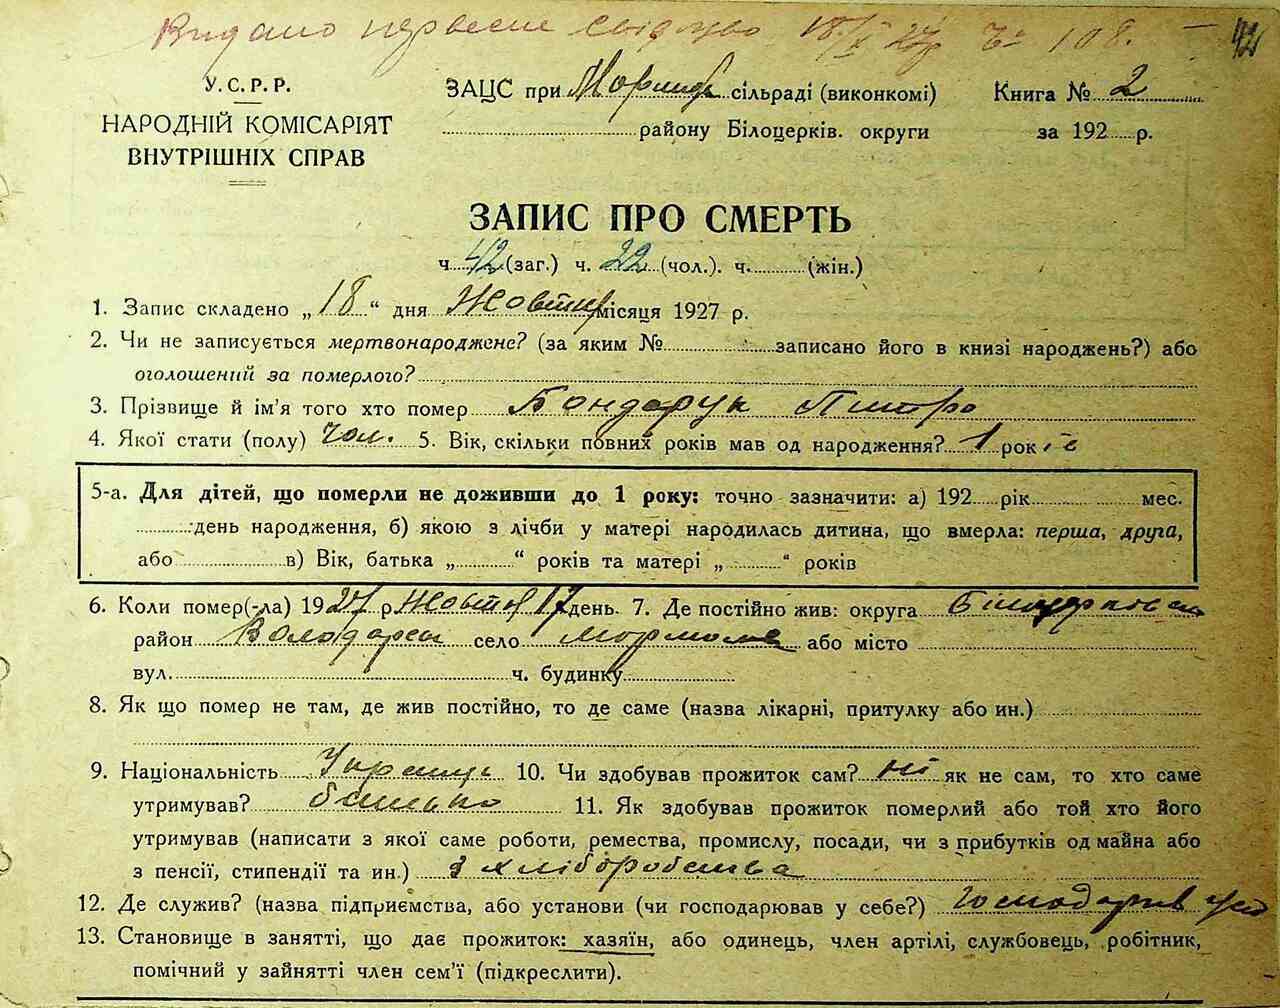 Видано первесне свідоцтво 18/X 27р № 108.
42
У. С. Р. Р.
НАРОДНІЙ КОМІСАРІЯТ
ВНУТРІШНІХ СПРАВ
ЗАЦС при сільраді (виконкомі) Книга № 2
району Білоцерків. округи за 192 р.
ЗАПИС ПРО СМЕРТЬ
ч 42 (заг.) ч. 22 (чол.). ч. (жін.)
1. Запис складено „18“ дня Жовтня місяця 1927 р.
2. Чи не записується мертвонароджене? (за яким № записано його в книзі народжень?) або
оголошений за померлого?
3. Прізвище й ім'я того хто помер Бондарук Питро
4. Якої стати (полу) чол. 5. Вік, скільки повних років мав од народження? 1 рок
5-а. Для дітей, що померли не доживши до 1 року: точно зазначити: а) 192 рік мес.
день народження, б) якою з лічби у матері народилась дитина, що вмерла: перша, друга,
або в) Вік, батька „ “ років та матері „ “ років
6. Коли помер(-ла) 1927 р Жовтня 17 день. 7. Де постійно жив: округа Білоцерковск
район Володарск село або місто
вул. ч. будинку
8. Як що помер не там, де жив постійно, то де саме (назва лікарні, притулку або ин.)
9. Національність Украинц 10. Чи здобував прожиток сам? ні як не сам, то хто саме
утримував? батько 11. Як здобував прожиток померлий або той хто його
утримував (написати з якої саме роботи, ремества, промислу, посади, чи з прибутків од майна або
з пенсії, стипендії та ин.) з хліборобства
12. Де служив? (назва підприємства, або установи (чи господарював у себе?) господарив
13. Становище в занятті, що дає прожиток: хазяїн, або одинець, член артілі, службовець, робітник,
помічний у зайнятті член сем'ї (підкреслити).